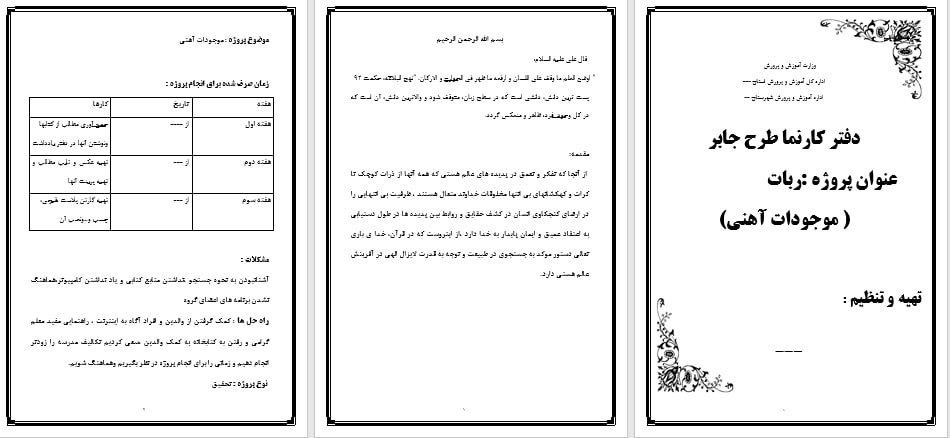 وزارت آموزش و پرورش
اداره کل آموزش و پرورش استان ----
اداره آموزش و پرورش شهرستان ---
دفتر کارنما طرح جابر
عنوان پروژه :ربات
( موجودات آهنی)
تهیه و تنظیم :
____
بسم الله الرحمن الرحیم
قال علی علیه السلام:
" اوضع العلم ما وقف علی اللسان و ارفعه ما ظهر فی الجوارح و الارکان. "نهج البلاغه، حکمت ۹۲
پست ترین دانش، دانشی است که در سطح زبان، متوقف شود و والاترین دانش، آن است که
در کل وجود فرد، ظاهر و منعکس گردد.
مقدمه:
از آنجا که تفکر و تعمق در پدیده های عالم هستی که همه آنها از ذرات کوچک تا
کرات و کهکشانهای بی انتها مخلوقات خداوند متعال هستند ، ظرفیت بی انتهایی را
در ارضای کنجکاوی انسان در کشف حقایق و روابط بین پدیده ها در طول دستیابی
به اعتقاد عمیق و ایمان پایدار به خدا دارد .از اینروست که در قرآن، خدا ی باری
تعالی دستور موکد به جستجوی در طبیعت و توجه به قدرت لایزال الهی در آفرینش
عالم هستی دارد.
۱
موضوع پروژه : موجودات آهنی
زمان صرف شده برای انجام پروژه :
هفته تاریخ کارها
هفته اول از ---- جمع آوری مطالب از کتابها
ونوشتن آنها در دفتر یادداشت
هفته دوم از --- تهیه عکس و تایپ مطالب و
تهیه پرینت آنها
هفته سوم از --- تهیه کارتن پلاست ،قیچی،
چسب و...ونصب آن
مشکلات :
آشنانبودن به نحوه جستجو ،نداشتن منابع کتابی و یاد نداشتن کامپیوتر،هماهنگ
نشدن برنامه های اعضای گروه
راه حل ها : کمک گرفتن از والدین و افراد آگاه به اینترنت ، راهنمایی مفید معلم
گرامی و رفتن به کتابخانه به کمک والدین ،سعی کردیم تکالیف مدرسه را زودتر
انجام دهیم و زمانی را برای انجام پروژه در نظر بگیریم وهماهنگ شویم.
نوع پروژه : تحقیق
۲